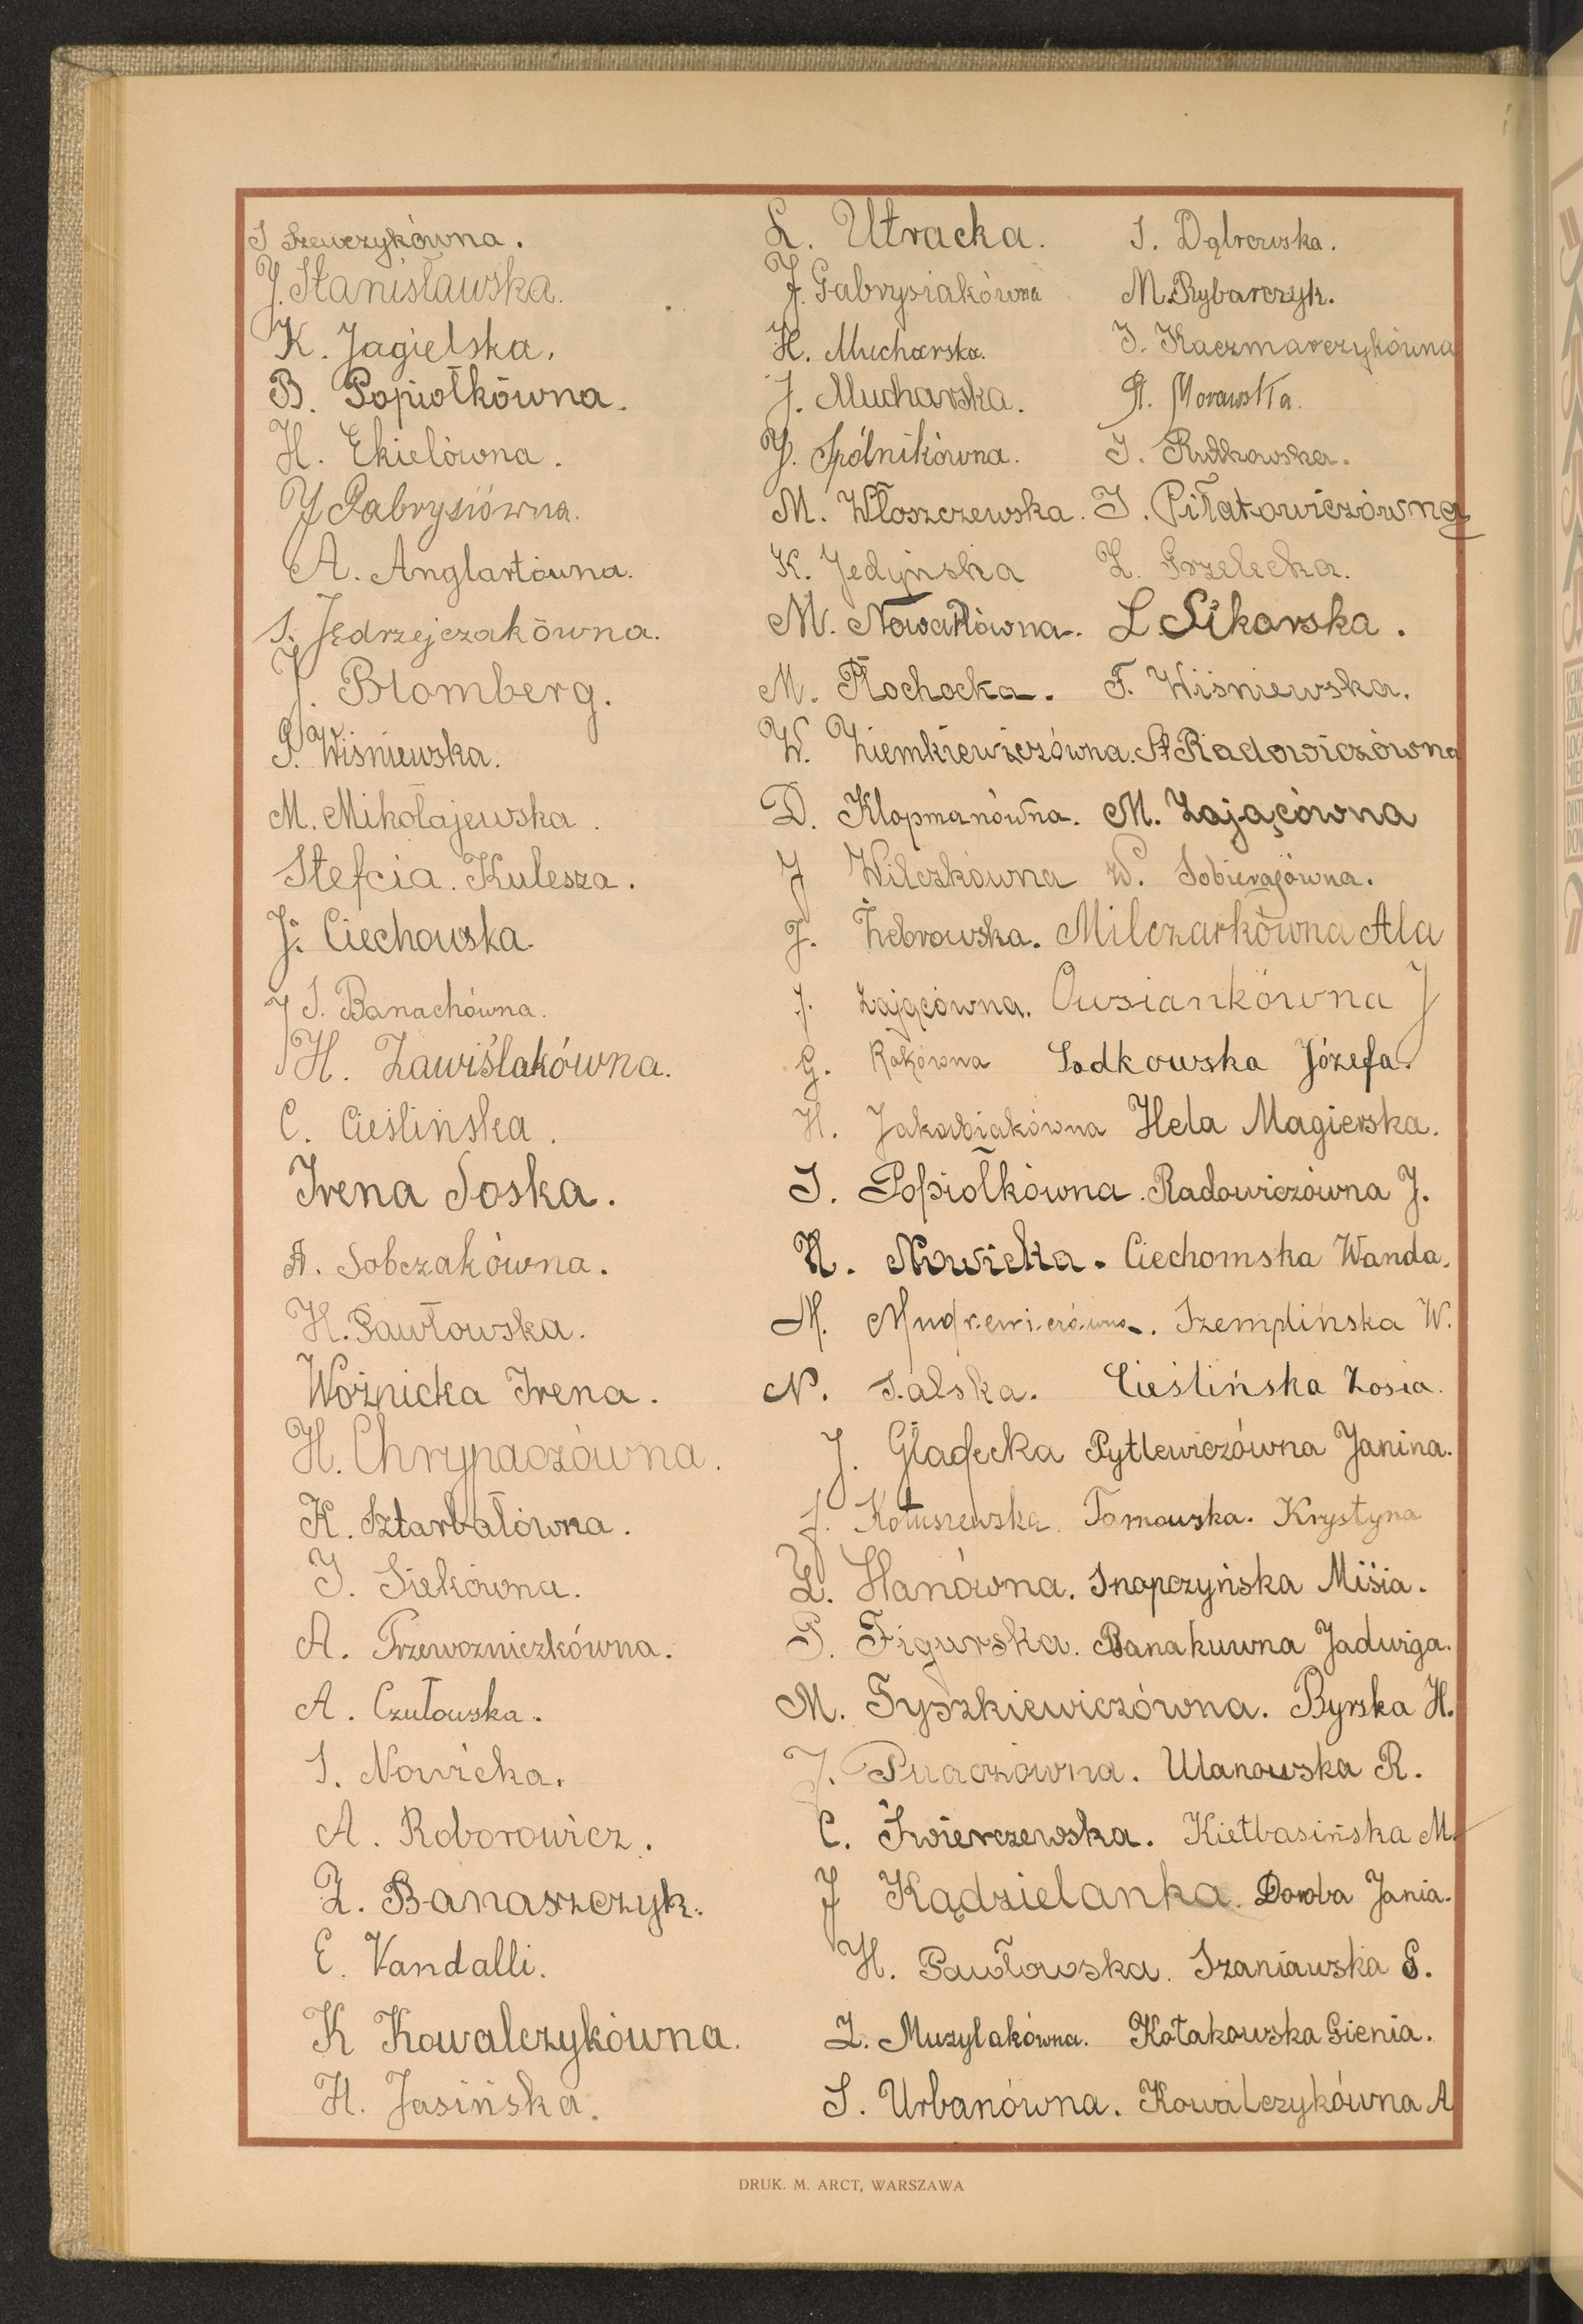 S Szewczykówna.
J. Stanisławska.
K. Jagielska.
B. Popiołkówna.
H. Ekielówna.
J Gabrysiówna.
A. Anglartówna.
S. Jędrzejczakówna.
J. Blomberg.
S. Wiśniewska.
M. Mikołajewska.
Stefcia. Kulesza.
J. Ciechowska.
J S. Banachówna.
H. Zawiślakówna.
C. Cieślińska.
Irena Soska.
A. Sobczakówna.
H. Pawłowska.
Woźnicka Irena.
H. Chrypaczówna.
K. Sztarbałówna.
J. Siekówna.
A. Przewozniczkówna.
A. Czułowska.
S. Nowicka.
A. Roborowicz.
Z. Banaszczyk.
E. Vandalli.
K Kowalczykówna.
H. Jasińska.
L. Utracka.
J. Gabrysiakówna
H. Mucharska.
J. Mucharska.
J. Spólnikówna.
M. Włoszczewska.
K. Jedyńska
M. Nowakówna.
M. Płochocka.
W. Ziemkiewiczówna.
D. Klopmanówna.
J Wilczkówna
J. Żebrowska.
J. Zajączówna.
G. Rakówna
H. Jakubiakówna
I. Popiołkówna.
H. Nowicka.
M.
N. Salska.
J. Gładecka
J. Kotuszewska.
Z. Hanówna.
P. Figurska.
M. Tyszkiewiczówna.
J. Puaczówna.
C. Świerczewska.
J Kądzielanka.
H. Pawłowska.
Z. Muzylakówna.
S. Urbanówna.
I. Dąbrowska.
M. Rybarczyk.
I. Kaczmarczykówna
St. Morawska.
I. Rutkowska.
I. Piłatowiczówna
Z. Grzelecka.
L Sikorska.
F. Wiśniewska.
St Radowiczówna
M. Zającówna
W. Sobierajówna.
Milczarkówna Ala
Owsiankówna J
Sadkowska Józefa.
Hela Magierska.
Radowiczówna J.
Ciechomska Wanda.
Szemplińska W.
Cieślińska Zosia.
Pytlewiczówna Janina.
Tarnowska. Krystyna
Snopczyńska Misia.
Banakuwna Jadwiga.
Byrska H.
Ulanowska R.
Kiełbasińska M.
Doroba Jania.
Szaniawska G.
Kołakowska Gienia.
Kowalczykówna A
DRUK. M. ARCT, WARSZAWA